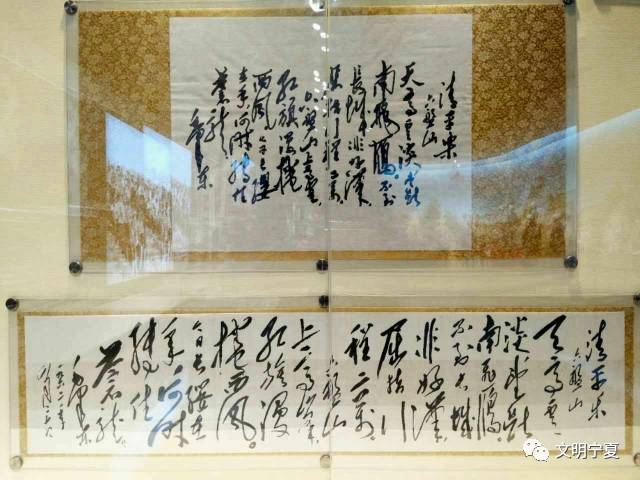 清平乐
六盘山
天高云淡望断
南飞雁不到
長城非好漢
屈指行程二万
六盘山上高峰
红旗漫捲
西风今日長缨
在手何时缚住
苍龙
毛泽东
清平乐
六盘山
天高云
淡望断
南飞雁。
不到长城
非好漢，
屈指行
程二万。
六盘山
上高峰
红旗漫
捲西风。
今日长缨在
手，何时
缚住
苍龙
毛泽东
一九六一年
文明宁夏